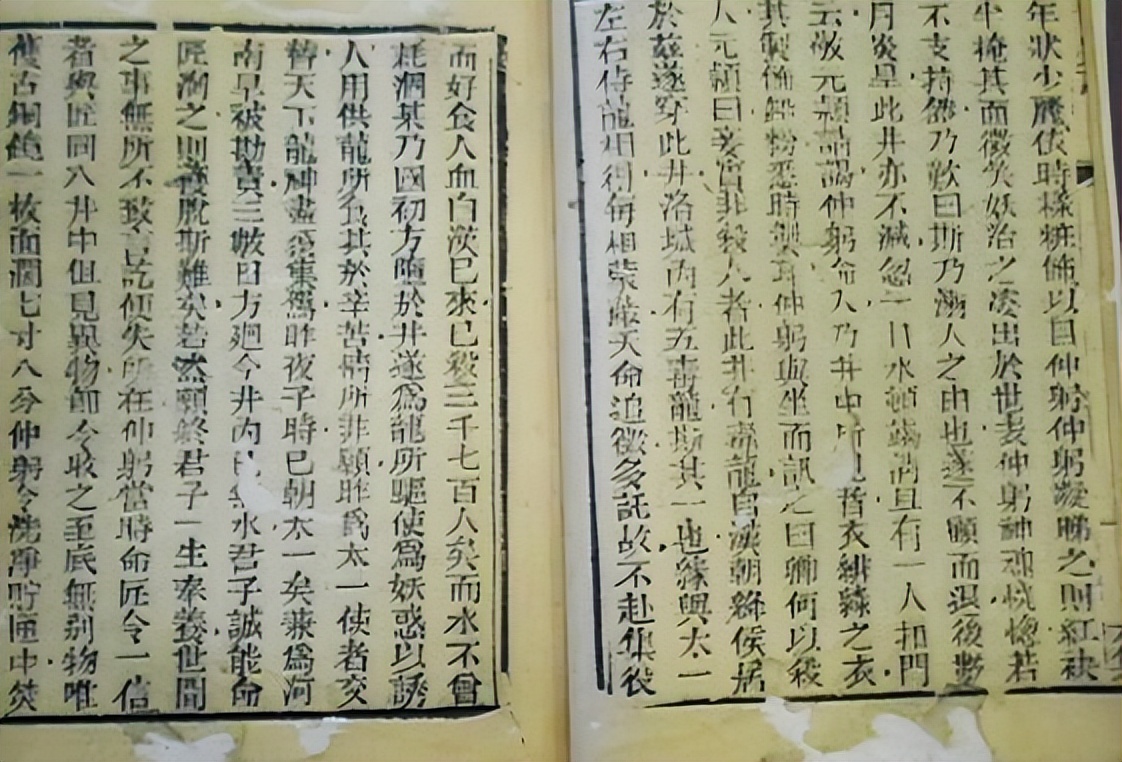 年狀少麗依時樣粧飾以目仲躬仲躬凝睇之則紅袂
半掩其面微笑妖冶之姿出於世表仲躬神魂恍惚若
不支持然乃歎曰斯乃溺人之由也遂不顧而退後數
月炎旱此井亦不減忽一日水頓竭清旦有一人扣門
云敬元穎請謁仲躬命入乃井中所見者衣緋綠之衣
其製飾鉛粉悉時製耳仲躬與坐而訊之曰卿何以殺
人元穎曰妾實非殺人者此井有毒龍自漢朝絳侯居
於茲遂穿此井洛城內有五毒龍斯其一也緣與太一
左右侍龍相得每相蒙蔽天命追徵多託故不赴集役
而好食人血自漢已來已殺三千七百人矣而水不曾
耗涸某乃國初方墮於井遂爲龍所驅使爲妖惑以誘
人用供龍所食其於辛苦情所非願昨爲太一使者交
替天下龍神盡須集駕昨夜子時已朝太一矣兼爲河
南旱被勘責三數日方廻今井內已無水君子誠能命
匠淘之則獲脫斯難矣若然願終君子一生奉養世間
之事無所不致言訖便失所在仲躬當時命匠令一信
者與匠同入井中但見異物卽令收之至底無別物唯
獲古銅鏡一枚面濶七寸八分仲躬令洗凈貯匣中焚